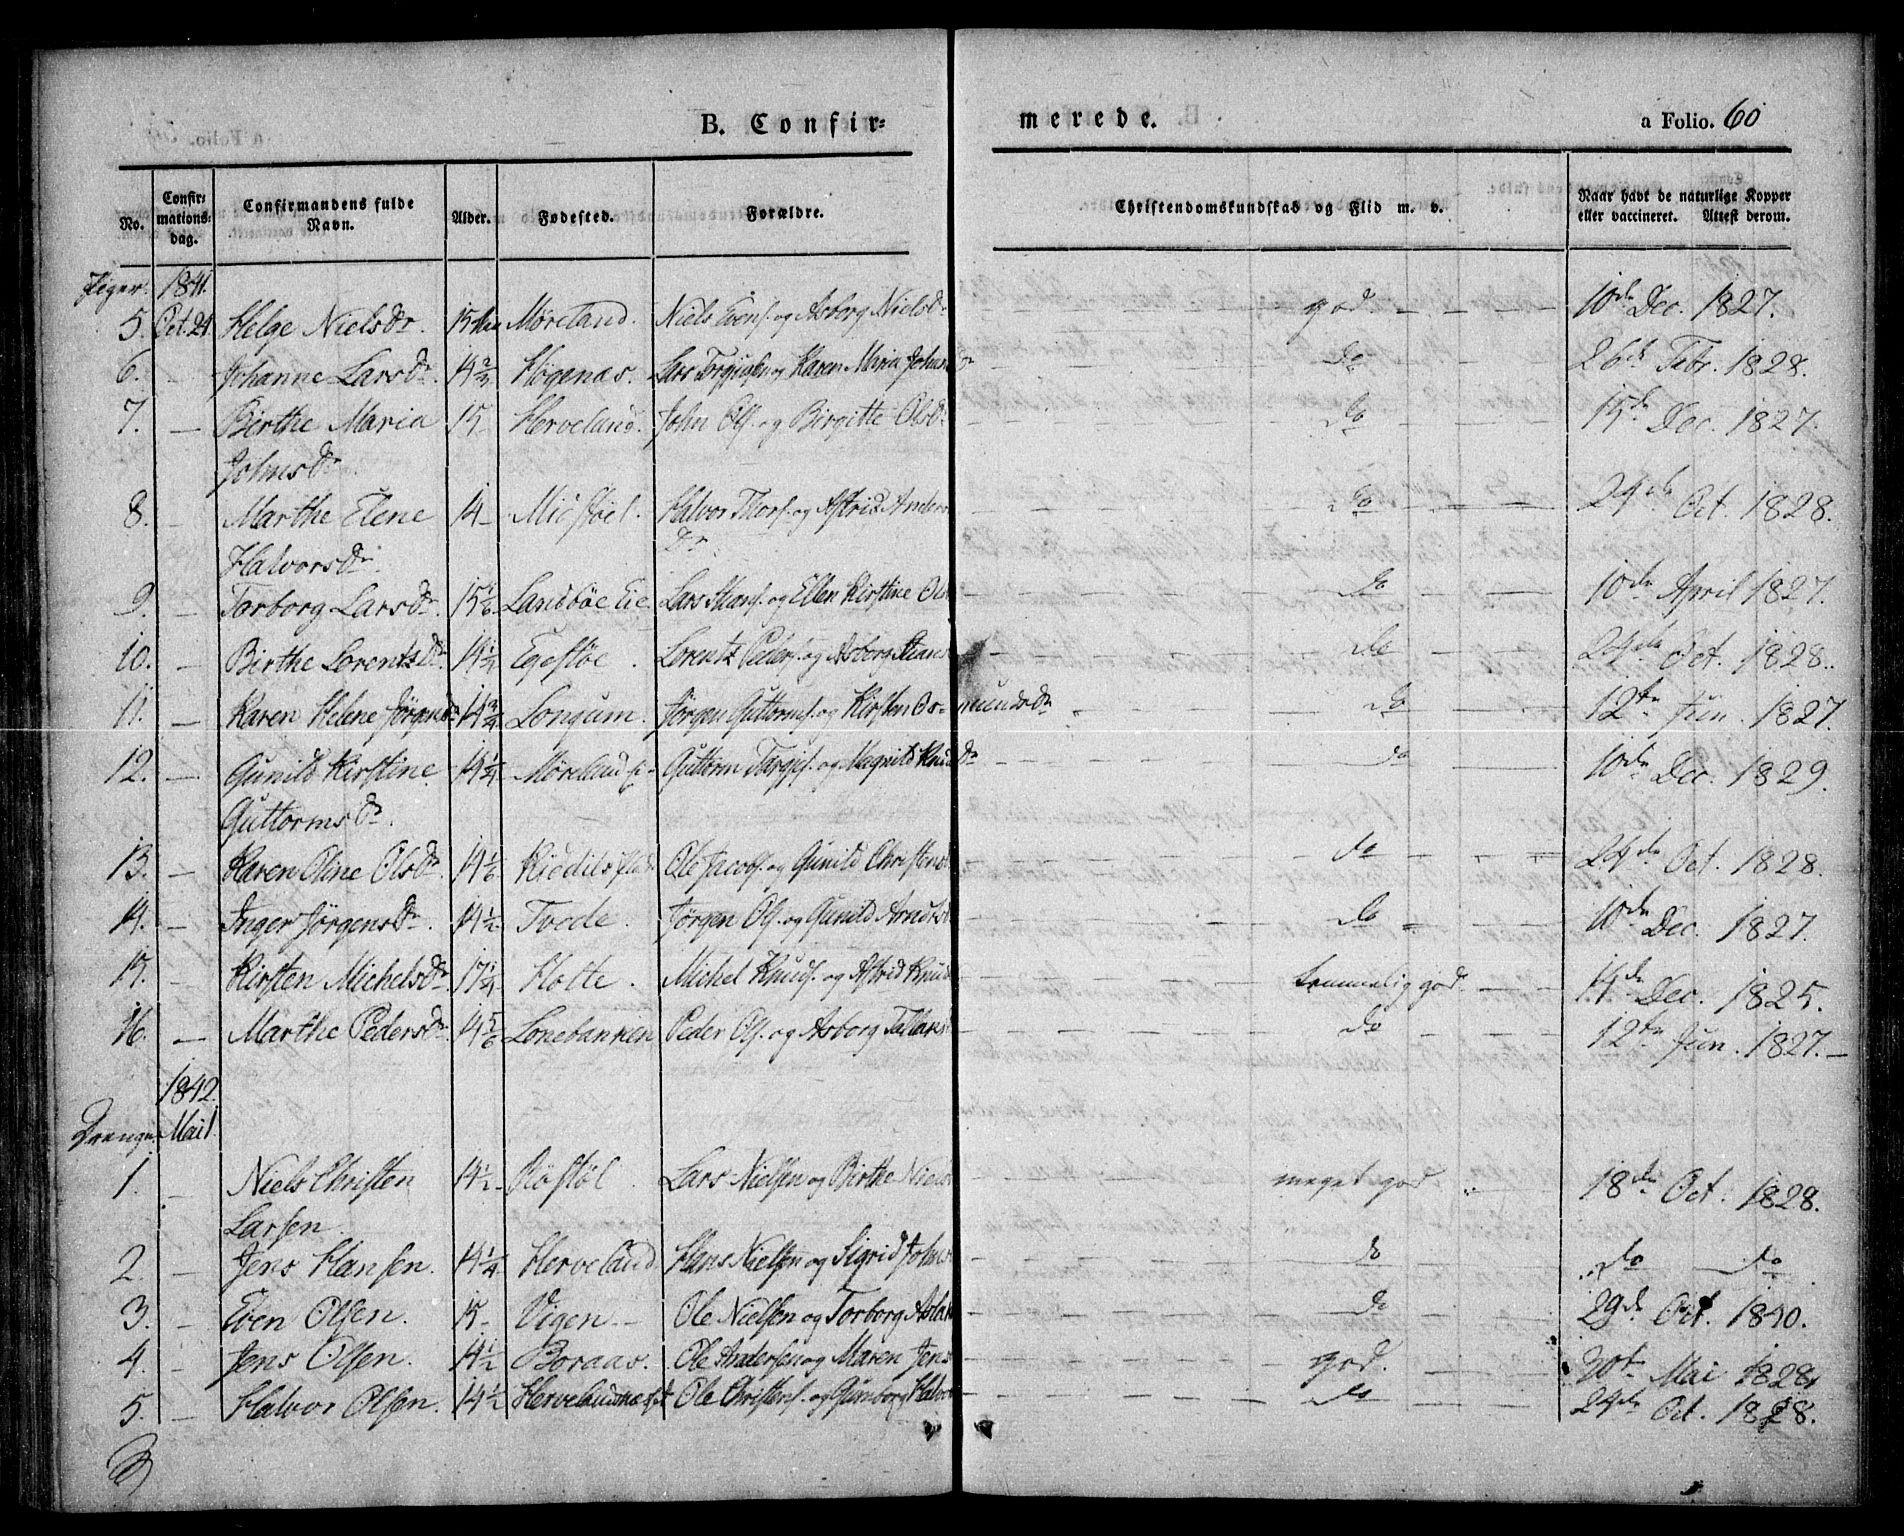 B. Confir= merede. a Folio. 60
No. Confir= mations= dag. Confirmandens fulde Navn. Alder. Fødested. Forældre. Christendomskundskab og Flid m. v. Naar havt de naturlige Kopper eller vaccineret. Attest derom.
Piger. 1841.
5. Oct. 24 Helge NielsDr. 15 Møreland. Niels Evens. og Asborg NielsDr god. 10de Dec. 1827.
6. — Johanne LarsDr. 14 2/3 Høgenæs. Lars Torgius og Karen Maria Do 26de Febr. 1828.
7. — Birthe Maria 15 Herveland. John Ols. og Birgitte OlsDr Do 15de Dec. 1827.
JohnsDr
8. — Marthe Elene 14 — Midstøl. Halvor Thors. og Astrid Anders Do 24de Oct. 1828.
HalvorsDr. Dr.
9. — Torborg LarsDr. 15 1/6 Landbøe Eie. Lars Stians. og Ellen Kirstine Ols Do 10de April 1827.
10. — Birthe LorentzDr. 14 1/4 Egestøe. Lorentz Peders. og Asborg Stians Do 24de Oct. 1828.
11. — Karen Helene JørgensDr 14 3/4 Longum. Jørgen Guttorms. og Kirsten Os=mundsDr Do 12te Jun. 1827.
12. — Gunild Kirstine 14 1/4 Guttorm Torgjs. og Magnild KnudsDr do 10de Dec. 1829.
GuttormsDr.
13. — Karen Oline OlsDr. 14 1/6 Ole Jacobs. og Gunild Christens do 24de Oct. 1828.
14. — Inger JørgensDr. 14 1/2 Tvede. Jørgen Ols. og Gunild Arnts Do 10de Dec. 1827.
15. — Kirsten MichelsDr. 17 1/4 Holte. Michel Knuds. og Astrid Knuds temmelig god. 14de Dec. 1825.
16. — Marthe PedersDr 14 5/6 Lonebakken Peder Ols. og Asborg Tallaks Do 12te Jun. 1827. —
1842.
Drenge. Mai 1.
1. — Niels Christen 14 1/2 Røstøl. Lars Nielsen og Birthe Niels meget god. 18de Oct. 1828.
Larsen.
2. — Jens Hansen. 14 1/4 Herveland Hans Nielsen og Sigrid Johns do Do Do
3. — Even Olsen. 15 — Vigen — Ole Nielsen og Torborg Aslak do 29de Oct. 1840.
4. — Jens Olsen. 14 1/2 Boraas. Ole Andersen og Maren Jens god. 20de Mai 1828.
5. — Halvor Olsen. 14 1/2 Ole Christens. og Gunborg Halvor Do 24de Oct. 1828.